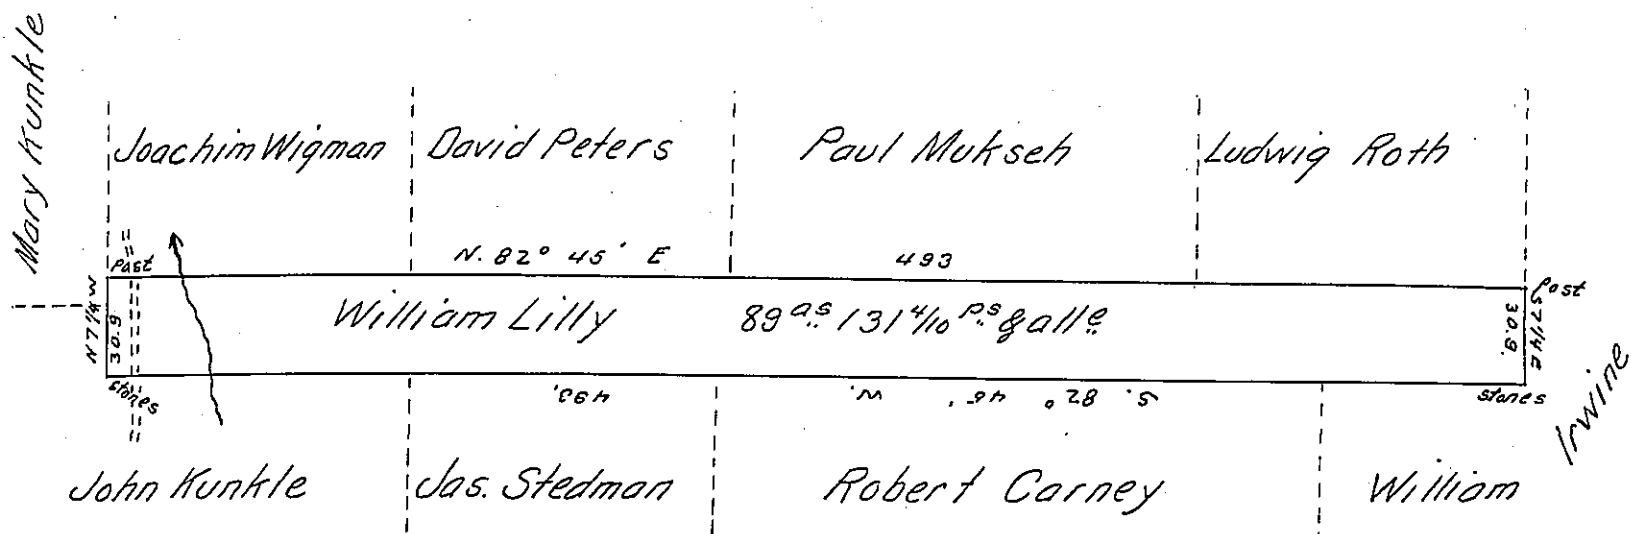 Mary Kunkle
Joachim Wigman David Peters Paul Mukseh Ludwig Roth
N. 82° 45' E 493
Post
Post
N 7 1/4 W
30.9
William Lilly 89 as. 131 4/10 ps. & alle.
30.9.
S 7 1/4 E
stones
S. 82° 45' W. 493.
stones
John Kunkle Jas. Stedman Robert Carney William Irwine